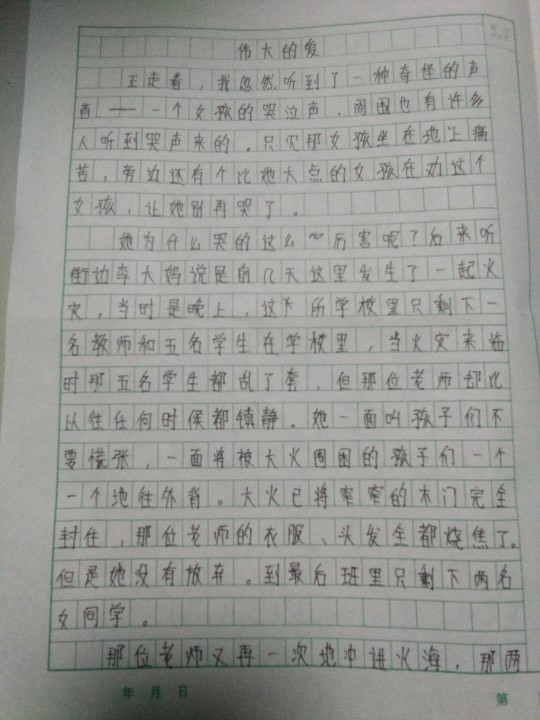 伟大的爱
正走着，我忽然听到了一种奇怪的声
音——一个女孩的哭泣声，周围也有许多
人听到哭声来的。只见那女孩坐在地上痛
苦，旁边还有个比她大点的女孩在劝这个
女孩，让她别再哭了。
她为什么哭的这么厉害呢？后来听
街边李大妈说是前几天这里发生了一起火
灾，当时是晚上，这所学校里只剩下一
名教师和五名学生在学校里，当火灾来临
时那五名学生都乱了套，但那位老师却比
以往任何时候都镇静。她一面叫孩子们不
要慌张，一面将被大火围困的孩子们一个
一个地往外背。大火已将窄窄的木门完全
封住，那位老师的衣服、头发全都烧焦了。
但是她没有放弃。到最后班里只剩下两名
女同学。
那位老师又再一次地冲进火海，那两
年 月 日
第